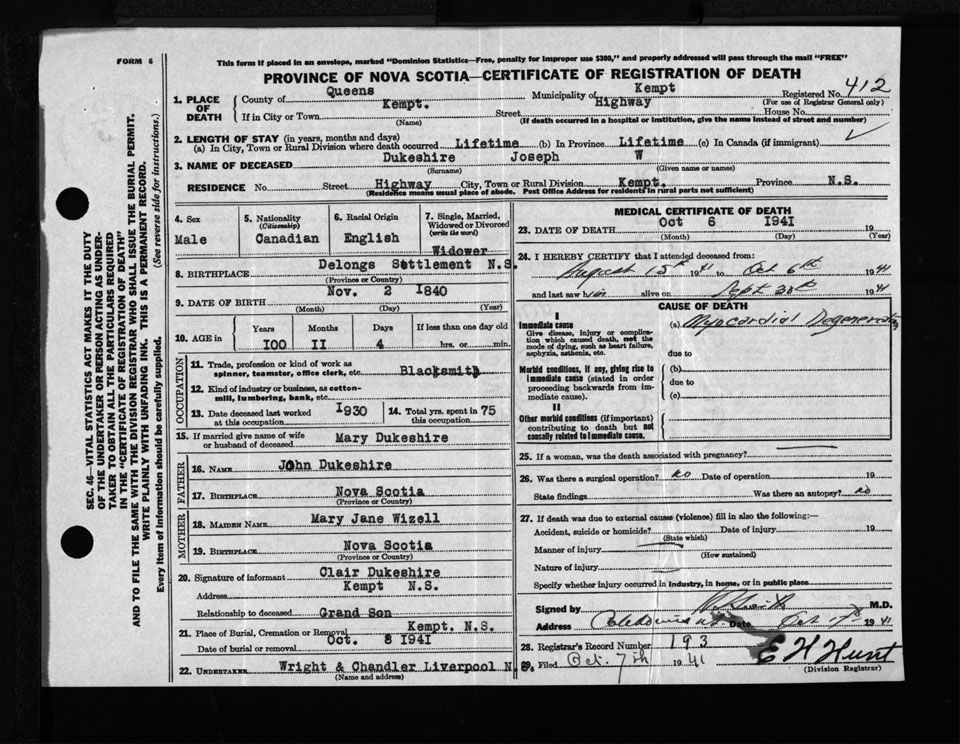 FORM 6
This form if placed in an envelope, marked "Dominion Statistics—Free, penalty for improper use $300," and properly addressed will pass through the mail "FREE"
PROVINCE OF NOVA SCOTIA—CERTIFICATE OF REGISTRATION OF DEATH
1. PLACE OF DEATH County of Queens Municipality of Kempt Registered No. 412
(For use of Registrar General only)
If in City or Town Kempt. Street Highway House No.
(Name) (If death occurred in a hospital or institution, give the name instead of street and number)
2. LENGTH OF STAY (in years, months and days)
(a) In City, Town or Rural Division where death occurred Lifetime (b) In Province Lifetime (c) In Canada (if immigrant)
3. NAME OF DECEASED Dukeshire Joseph W
(Surname) (Given name or names)
RESIDENCE No. Street Highway City, Town or Rural Division Kempt. Province N.S.
(Residence means usual place of abode. Post Office Address for residents in rural parts not sufficient)
4. Sex Male
5. Nationality (Citizenship) Canadian
6. Racial Origin English
7. Single, Married, Widowed or Divorced (write the word) Widower
8. BIRTHPLACE Delongs Settlement N.S.
(Province or Country)
9. DATE OF BIRTH Nov. 2 1840
(Month) (Day) (Year)
10. AGE in Years Months Days If less than one day old
100 11 4 hrs. or min.
OCCUPATION
11. Trade, profession or kind of work as spinner, teamster, office clerk, etc. Blacksmith
12. Kind of industry or business, as cotton-mill, lumbering, bank, etc.
13. Date deceased last worked at this occupation 1930
14. Total yrs. spent in this occupation 75
15. If married give name of wife or husband of deceased Mary Dukeshire
FATHER
16. NAME John Dukeshire
17. BIRTHPLACE Nova Scotia
(Province or Country)
MOTHER
18. MAIDEN NAME Mary Jane Wizell
19. BIRTHPLACE Nova Scotia
(Province or Country)
20. Signature of informant Clair Dukeshire
Address Kempt N.S.
Relationship to deceased Grand Son
21. Place of Burial, Cremation or Removal Kempt. N.S.
Date of burial or removal Oct. 8 1941
22. UNDERTAKER Wright & Chandler Liverpool N.S.
(Name and address)
MEDICAL CERTIFICATE OF DEATH
23. DATE OF DEATH Oct 6 1941 19
(Month) (Day) (Year)
24. I HEREBY CERTIFY that I attended deceased from:
August 15th 1941 to Oct 6th 1941
and last saw him alive on Sept 30th 1941
CAUSE OF DEATH
I
Immediate cause
Give disease, injury or complication which caused death, not the mode of dying, such as heart failure, asphyxia, asthenia, etc.
(a) Myocardial Degeneration
due to
Morbid conditions, if any, giving rise to immediate cause (stated in order proceeding backwards from immediate cause).
(b)
due to
(c)
II
Other morbid conditions (if important) contributing to death but not causally related to immediate cause.
25. If a woman, was the death associated with pregnancy?
26. Was there a surgical operation? no Date of operation 19
State findings Was there an autopsy? no
27. If death was due to external causes (violence) fill in also the following:—
Accident, suicide or homicide? Date of injury 19
(State which)
Manner of injury
(How sustained)
Nature of injury
Specify whether injury occurred in industry, in home, or in public place
Signed by M.D.
Address Caledonia Date Oct 1941
28. Registrar's Record Number 193
29. Filed Oct. 7th 1941 E H Hunt
(Division Registrar)
SEC. 46—VITAL STATISTICS ACT MAKES IT THE DUTY
OF THE UNDERTAKER OR PERSON ACTING AS UNDER-
TAKER TO OBTAIN ALL THE PARTICULARS REQUIRED
IN THE "CERTIFICATE OF REGISTRATION OF DEATH"
AND TO FILE THE SAME WITH THE DIVISION REGISTRAR WHO SHALL ISSUE THE BURIAL PERMIT.
WRITE PLAINLY WITH UNFADING INK. THIS IS A PERMANENT RECORD.
Every item of information should be carefully supplied. (See reverse side for instructions.)